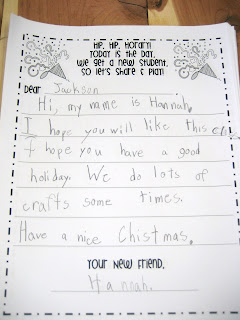 Hip, Hip, Horary!
Today is the day,
We get a new student,
So let's share & play!
Dear Jackson
Hi, my name is Hannah.
I hope you will like this
I hope you have a good
holiday. We do lots of
crafts some times.
Have a nice Chistmas.
Your new friend,
Hannah.